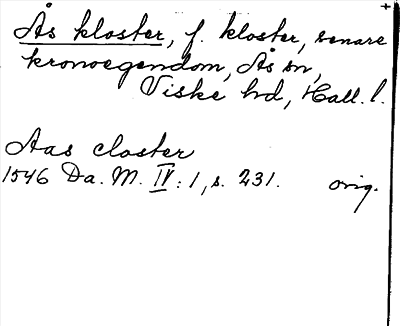 +
Ås kloster, f. kloster, senare
kronoegendom, Ås sn,
Viske hd, Hall. l.
Aas closter
1546 Da. M. IV: 1, s. 231. orig.